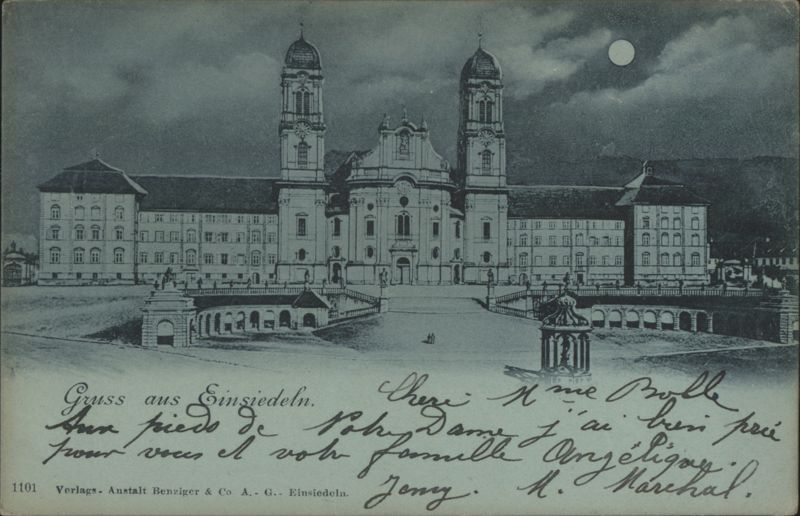 Gruss aus Einsiedeln.
Cheri Mme Bolle
Aux pieds de Notre Dame j'ai bien prié
pour vous et votre famille Angélique.
Jenny. M. Marchal.
1101 Verlags-Anstalt Benziger & Co A.-G.- Einsiedeln.